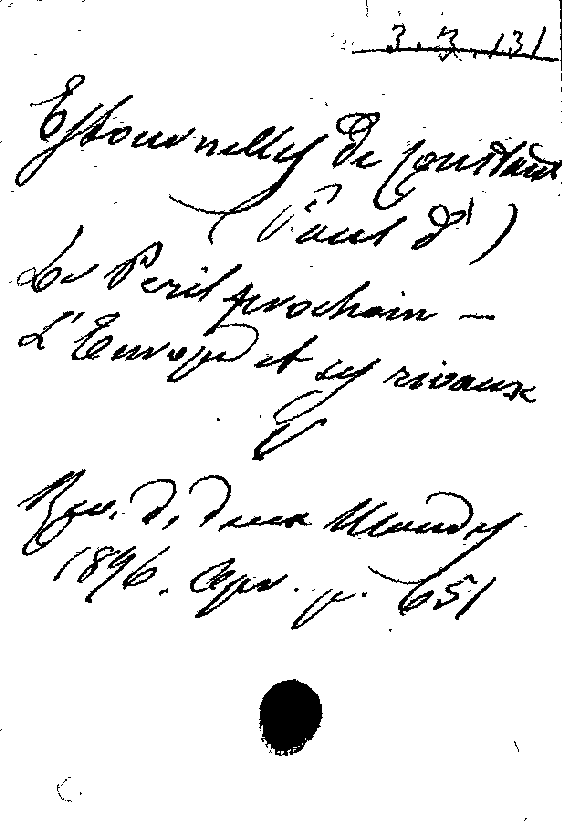 3.3.131
Estournelles de Constant
(Paul d')
Le Péril prochain —
L'Europe et ses rivaux
Rev. d. deux Mondes
1896. Apr. p. 651